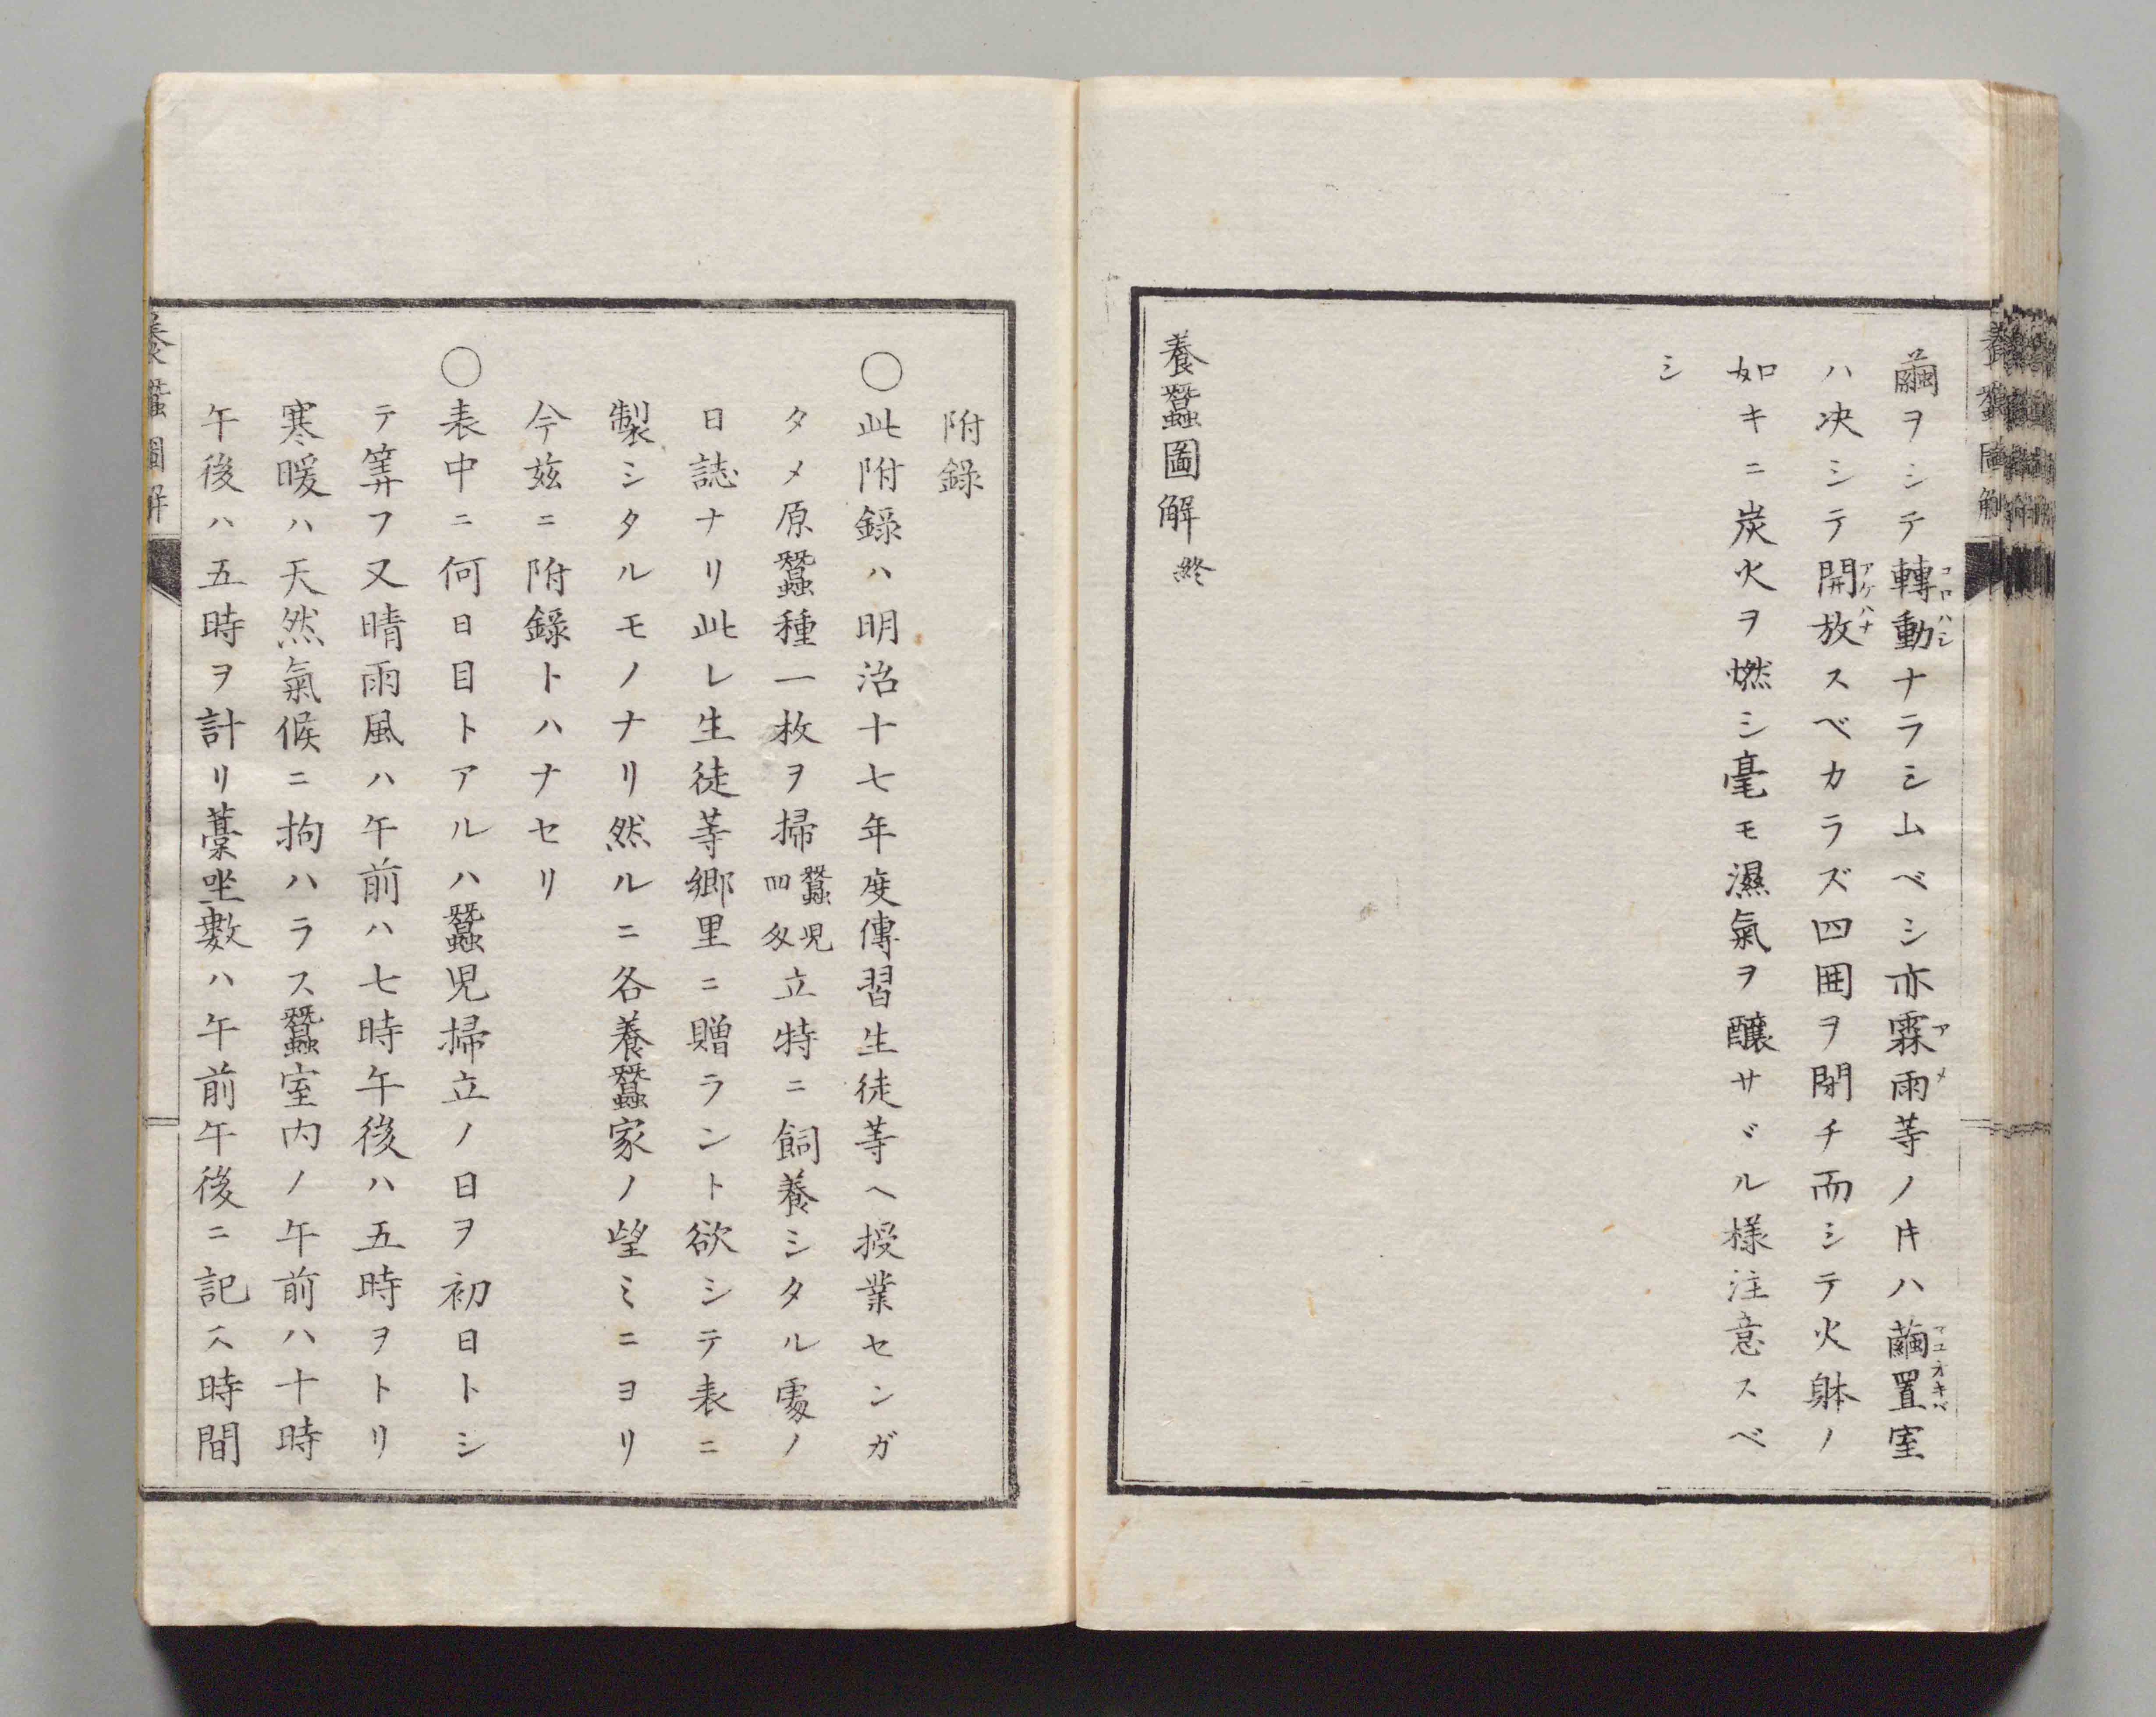 繭ヲシテ轉動ナラシムベシ亦霖雨等ノ𪜈ハ繭置室
コロハシ
アメ
マユオキバ
ハ决シテ開放スベカラズ四囲ヲ閉チ而シテ火躰ノ
アケハナ
如キニ炭火ヲ燃シ毫モ濕氣ヲ釀サヾル様注意スベ
シ
養蠶圖解終
附錄
〇此附錄ハ明治十七年度傳習生徒等ヘ授業センガ
タメ原蠶種一枚ヲ掃蠶児四匁立特ニ飼養シタル處ノ
日誌ナリ此レ生徒等郷里ニ贈ラント欲シテ表ニ
製シタルモノナリ然ルニ各養蠶家ノ望ミニヨリ
今玆ニ附錄トハナセリ
〇表中ニ何日目トアルハ蠶児掃立ノ日ヲ初日トシ
テ筭フ又晴雨風ハ午前ハ七時午後ハ五時ヲトリ
寒暖ハ天然氣候ニ拘ハラス蠶室内ノ午前ハ十時
午後ハ五時ヲ計リ藁坐數ハ午前午後ニ記ス時間
養蠶圖解